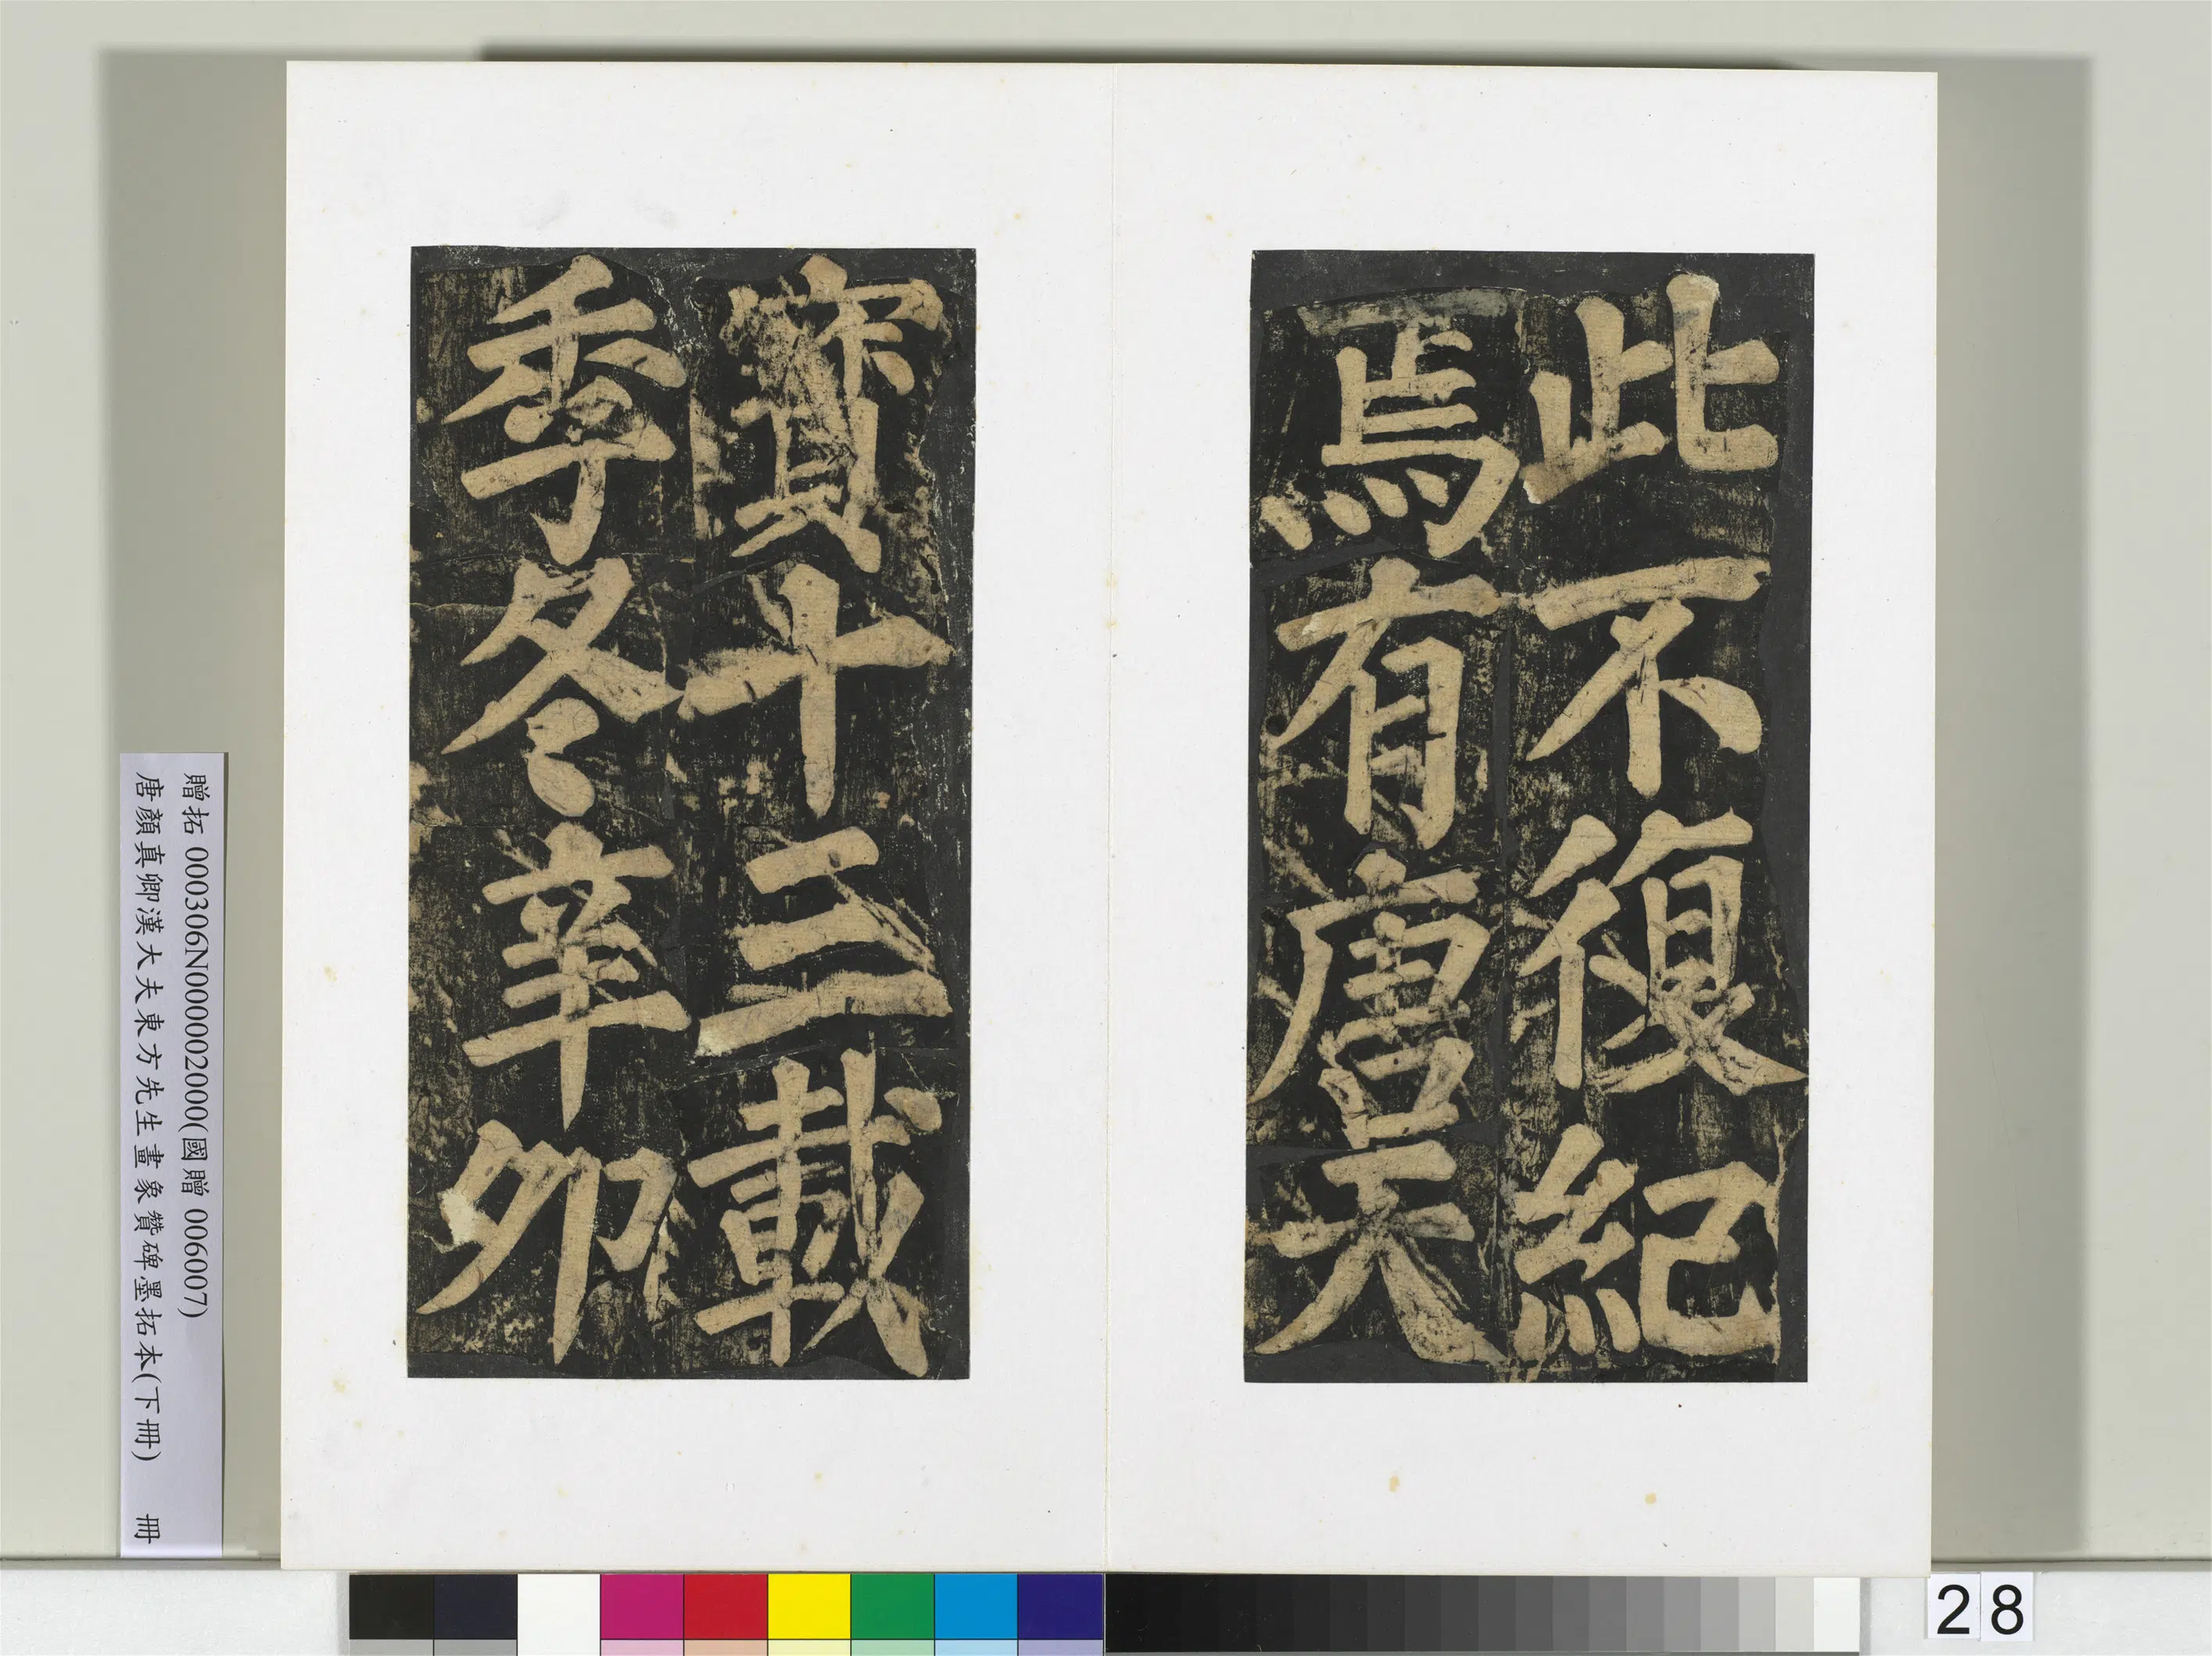 此不復紀
焉有唐天
寶十三載
季冬辛卯
贈拓 000306N000002000(國贈 006007)
唐顏真卿漢大夫東方先生畫象贊碑墨拓本(下冊) 冊
28